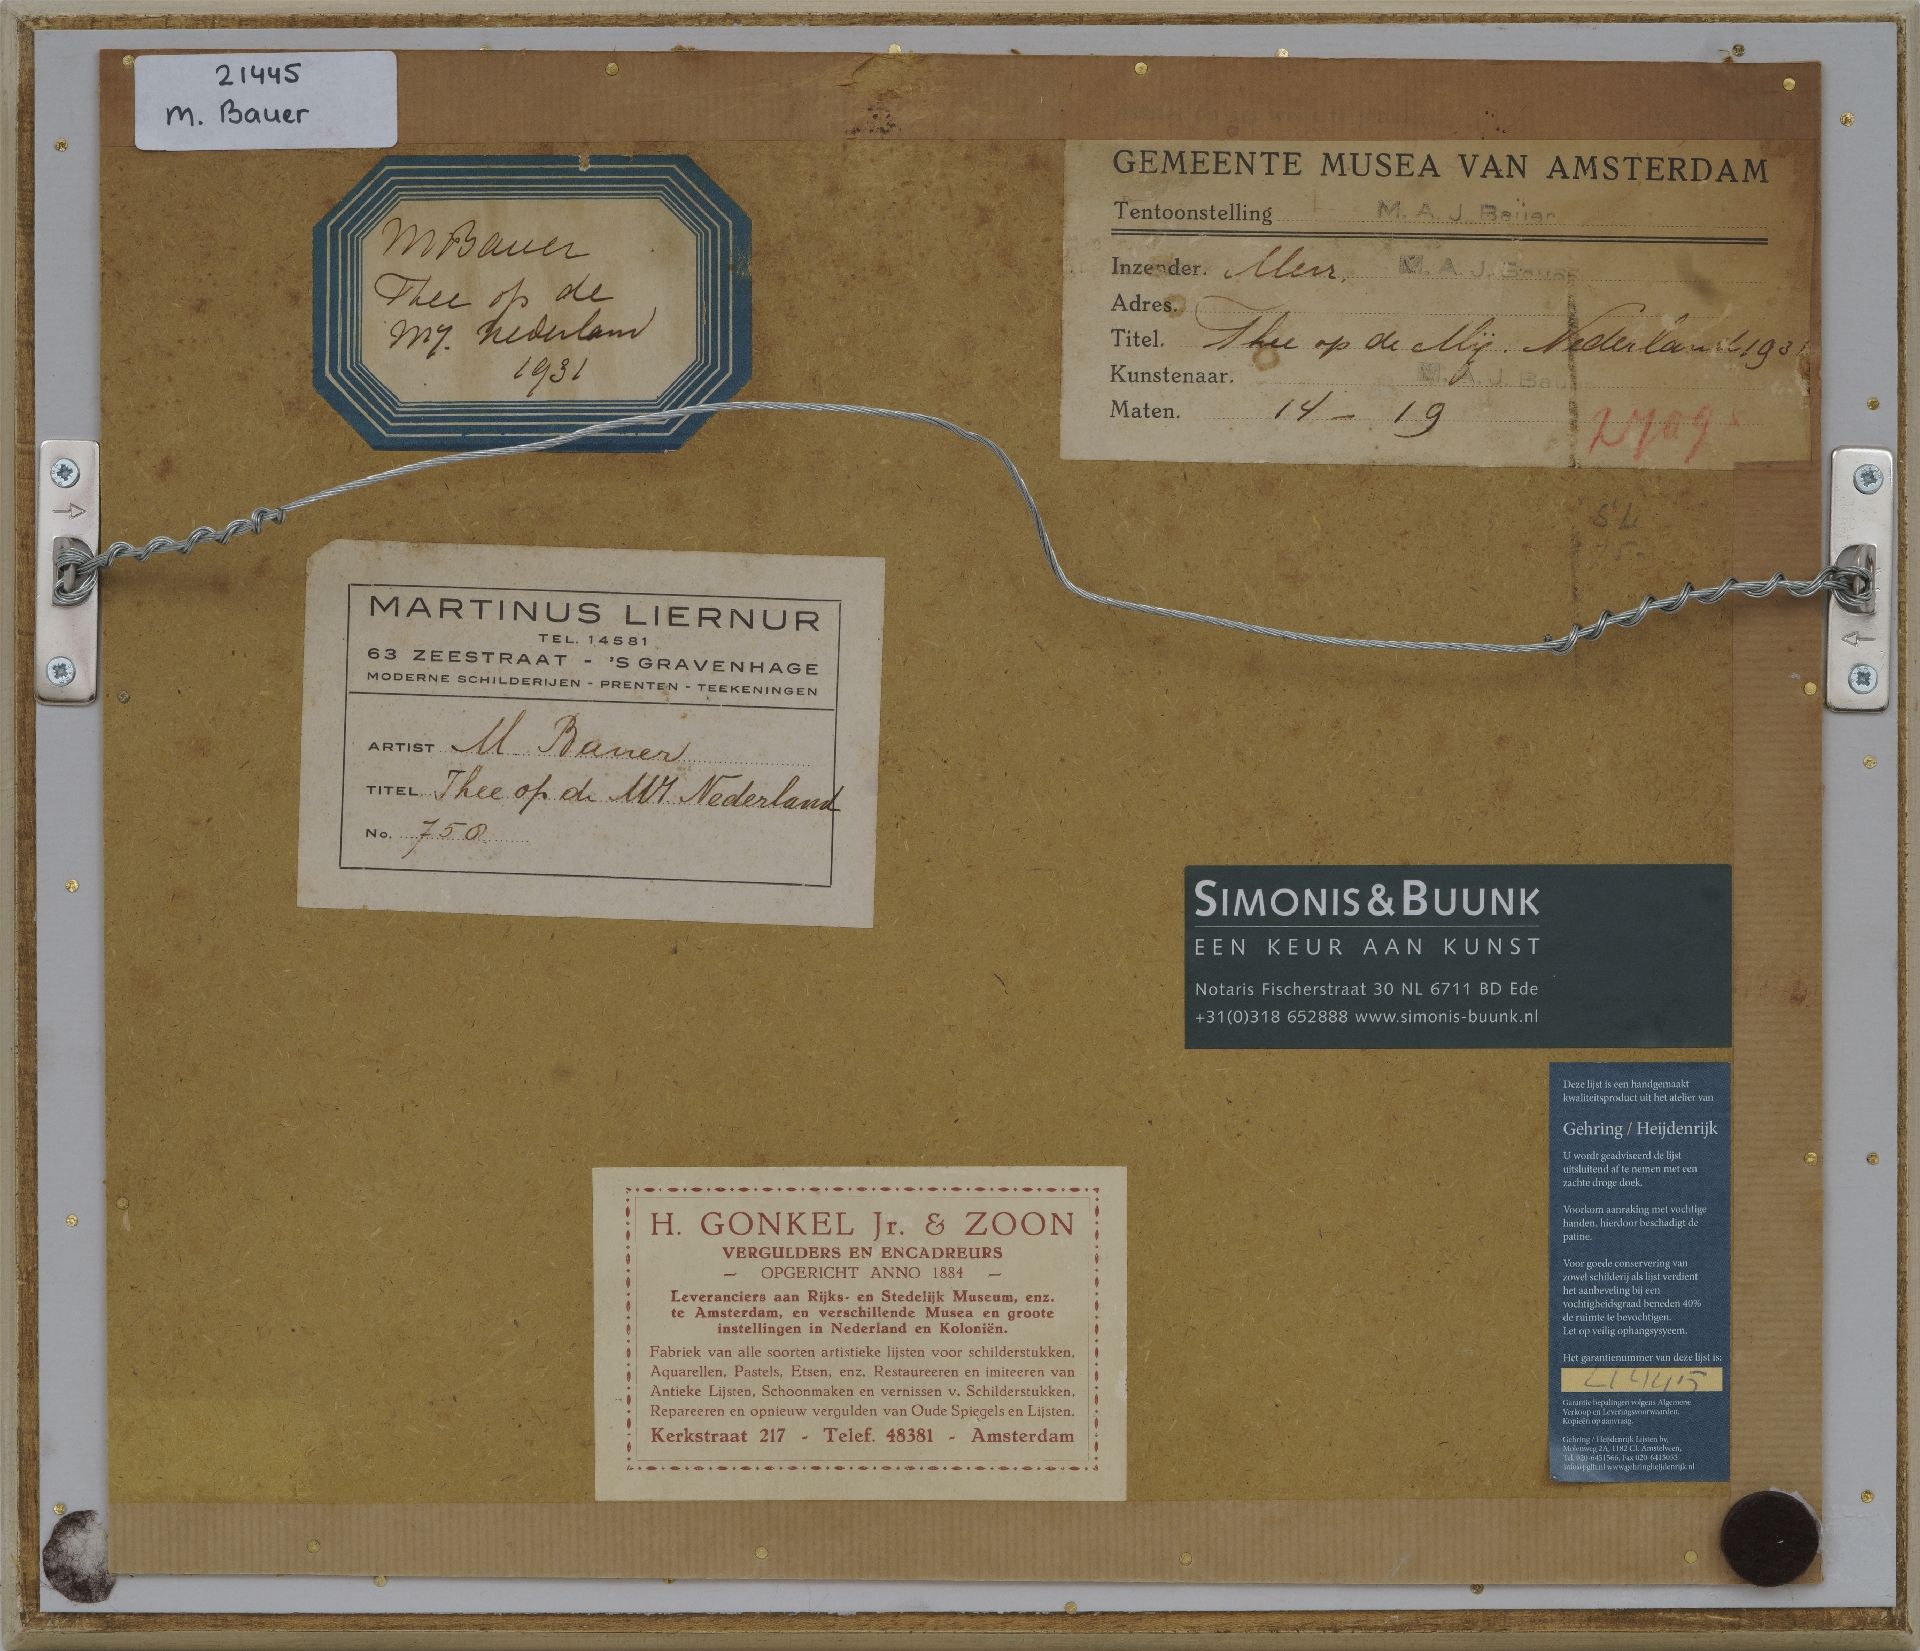 21445
M. Bauer
M Bauer
Thee op de
My. Nederland
1931
GEMEENTE MUSEA VAN AMSTERDAM
Tentoonstelling M. A. J. Bauer
Inzender. M. A. J. Bauer
Adres.
Titel. Thee op de Mij. Nederland 1931
Kunstenaar. M. A. J. Bauer
Maten. 14 - 19
MARTINUS LIERNUR
TEL. 14581
63 ZEESTRAAT - 'S GRAVENHAGE
MODERNE SCHILDERIJEN - PRENTEN - TEEKENINGEN
ARTIST M Bauer
TITEL Thee op de MY Nederland
No. 758
SIMONIS&BUUNK
EEN KEUR AAN KUNST
Notaris Fischerstraat 30 NL 6711 BD Ede
+31(0)318 652888 www.simonis-buunk.nl
Deze lijst is een handgemaakt
kwaliteitsproduct uit het atelier van
Gehring / Heijdenrijk
U wordt geadviseerd de lijst
uitsluitend af te nemen met een
zachte droge doek.
Voorkom aanraking met vochtige
handen, hierdoor beschadigt de
patine.
Voor goede conservering van
zowel schilderij als lijst verdient
het aanbeveling bij een
vochtigheidsgraad beneden 40%
de ruimte te bevochtigen.
Let op veilig ophangsysyeem.
Het garantienummer van deze lijst is:
21445
Garantie bepalingen volgens Algemene
Verkoop en Leveringsvoorwaarden.
Kopieën op aanvraag.
Gehring / Heijdenrijk Lijsten bv,
Molenweg 2A, 1182 CL Amstelveen,
Tel. 020-6451566, Fax 020-6413053
www.gehringheijdenrijk.nl
H. GONKEL Jr. & ZOON
VERGULDERS EN ENCADREURS
— OPGERICHT ANNO 1884 —
Leveranciers aan Rijks- en Stedelijk Museum, enz.
te Amsterdam, en verschillende Musea en groote
instellingen in Nederland en Koloniën.
Fabriek van alle soorten artistieke lijsten voor schilderstukken,
Aquarellen, Pastels, Etsen, enz. Restaureeren en imiteeren van
Antieke Lijsten, Schoonmaken en vernissen v. Schilderstukken,
Repareeren en opnieuw vergulden van Oude Spiegels en Lijsten.
Kerkstraat 217 - Telef. 48381 - Amsterdam